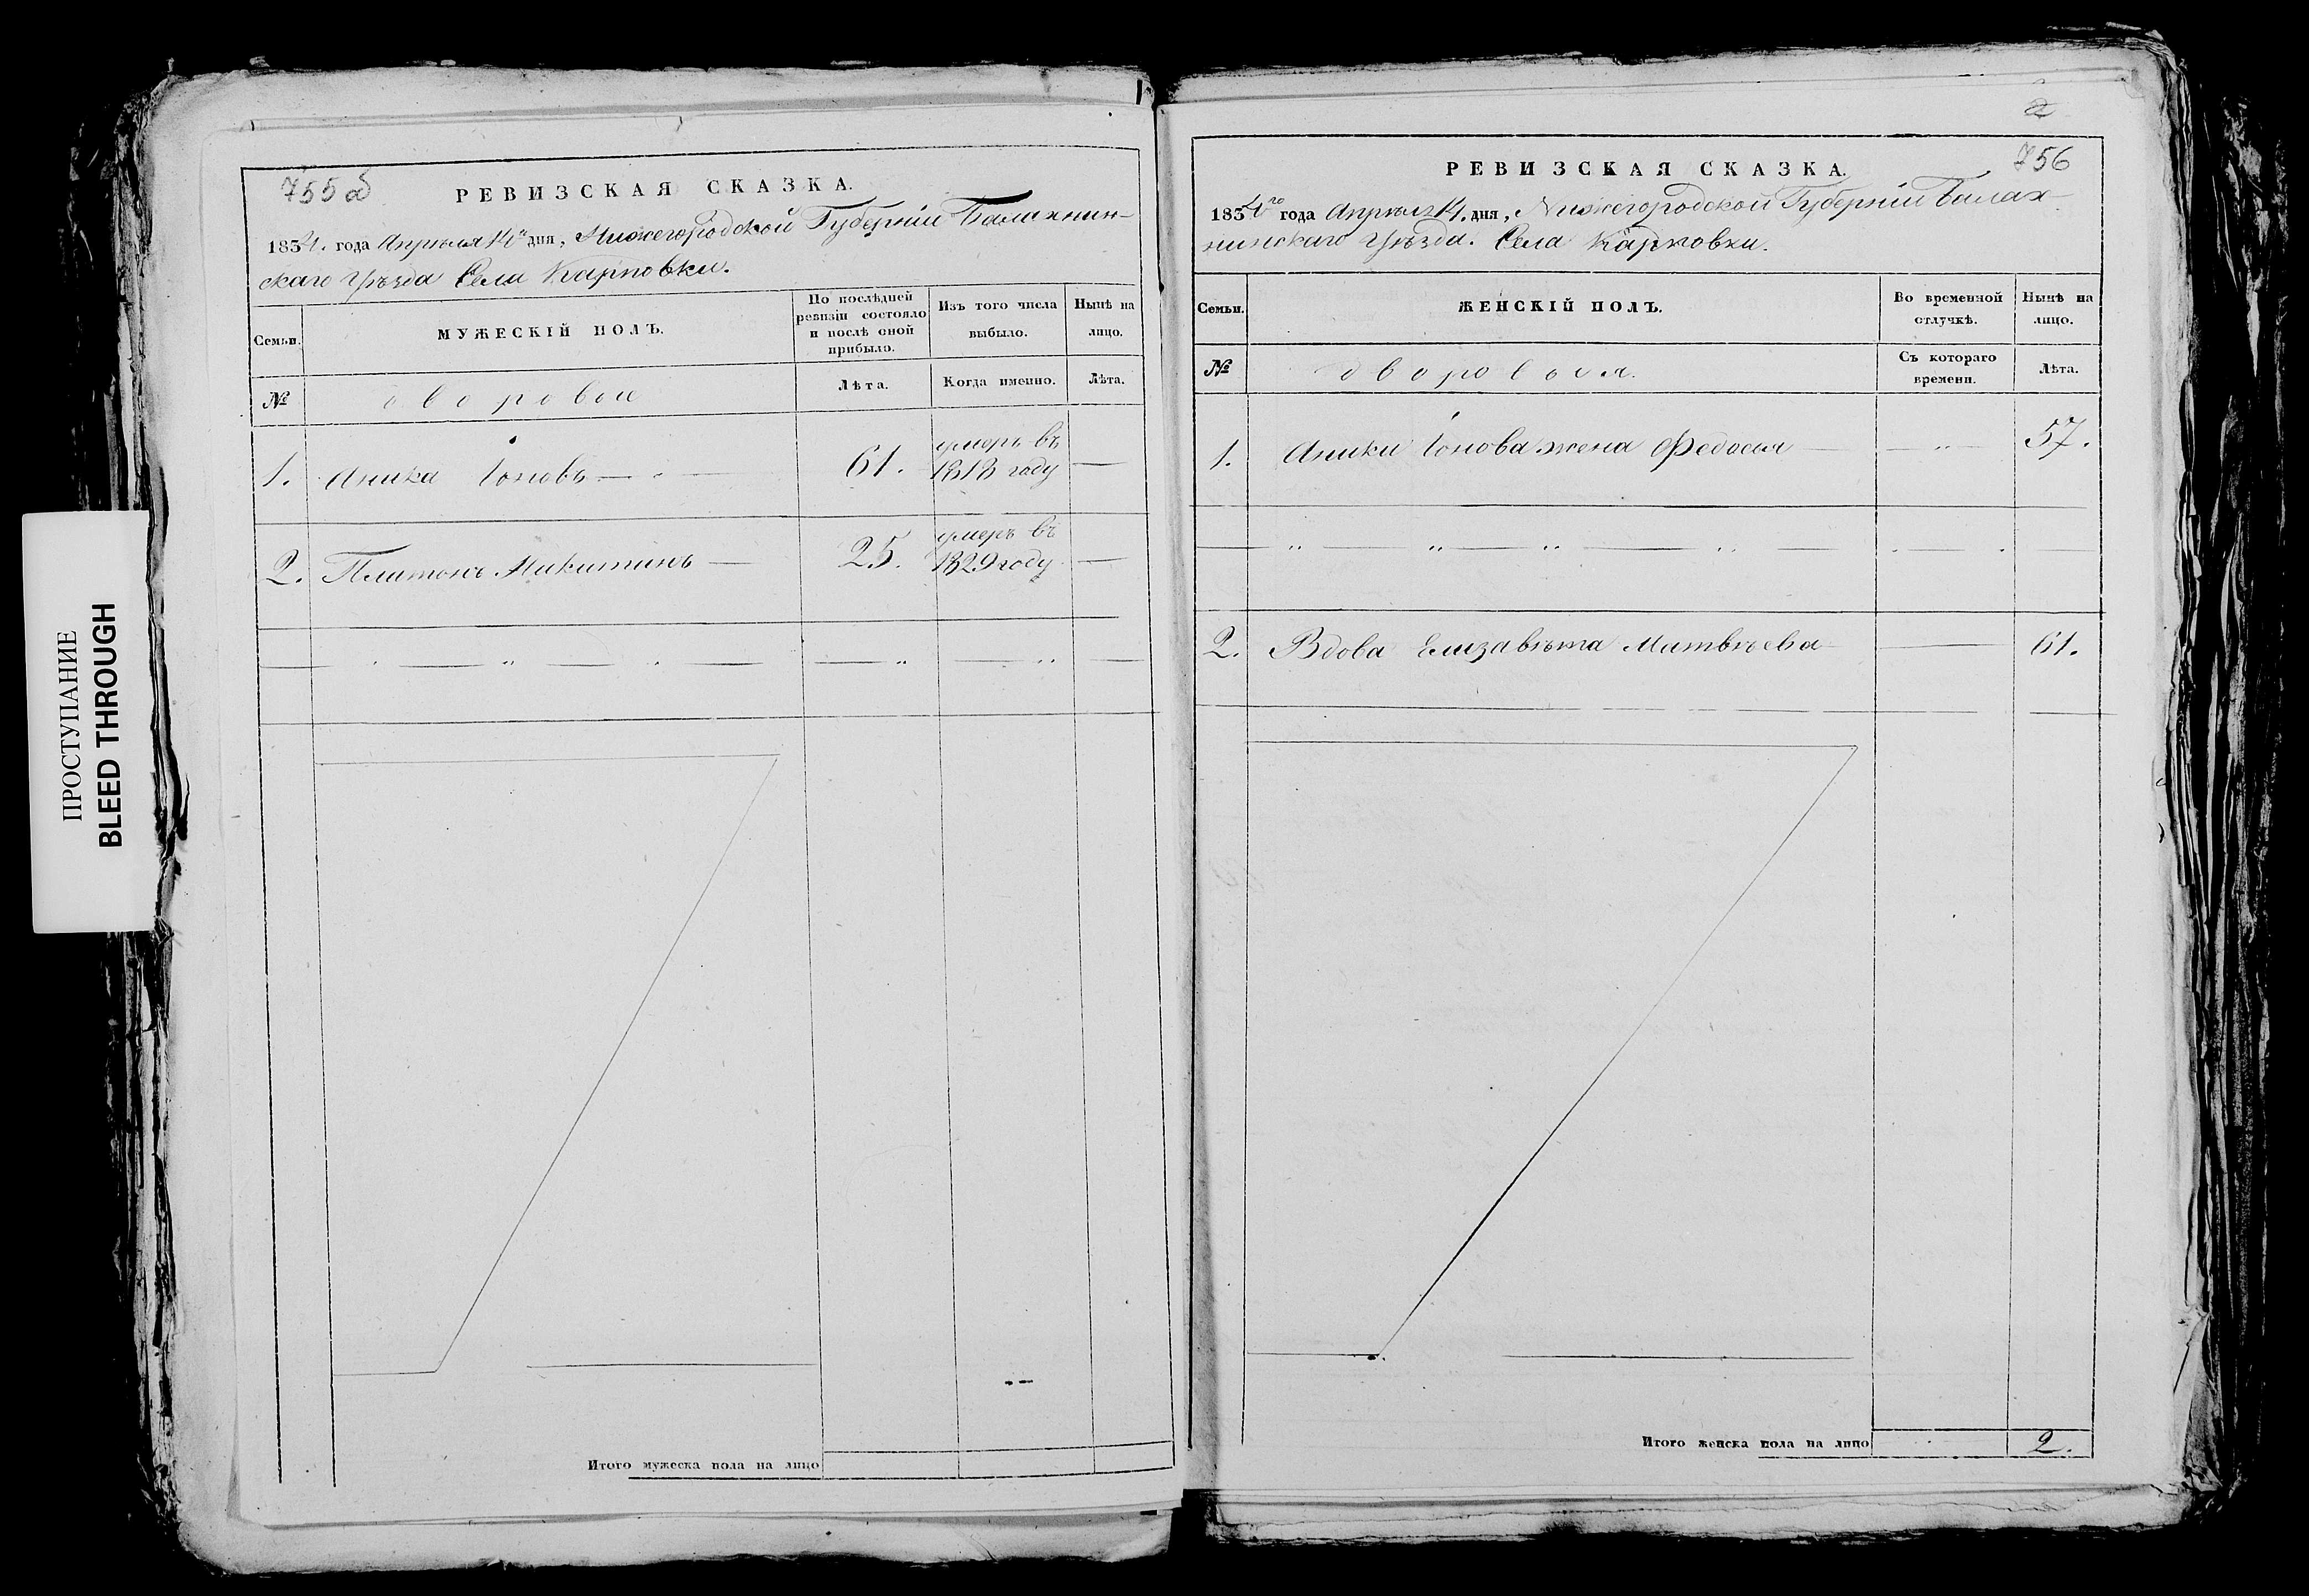 ПРОСТУПАНИЕ
BLEED THROUGH
755 об
РЕВИЗСКАЯ СКАЗКА.
1834. года Апреля 14го дня, Нижегородской Губернiи Балахнин-
скаго Уѣзда Села Карповки.
Семьи.
МУЖЕСКIЙ ПОЛЪ.
По послѣдней
ревизiи состояло
и послѣ оной
прибыло.
Изъ того числа
выбыло.
Нынѣ на
лицо.
№
дворовые
Лѣта.
Когда именно.
Лѣта.
1. Аника Iоновъ — 61. умеръ въ
1818 году —
2. Платонъ Никитинъ — 25. умеръ въ
1829 году —
Итого мужеска пола на лицо
2
756
РЕВИЗСКАЯ СКАЗКА.
1834го года Апреля 14. дня, Нижегородской Губернiи Балах-
нинскаго Уѣзда. Села Карповки.
Семьи.
ЖЕНСКIЙ ПОЛЪ.
Во временной
отлучкѣ.
Нынѣ на
лицо.
№
дворовыя.
Съ котораго
времени.
Лѣта.
1. Аники Iонова жена Федосья — 57.
2. Вдова Елизавѣта Матвѣева — 61.
Итого женска пола на лицо 2.